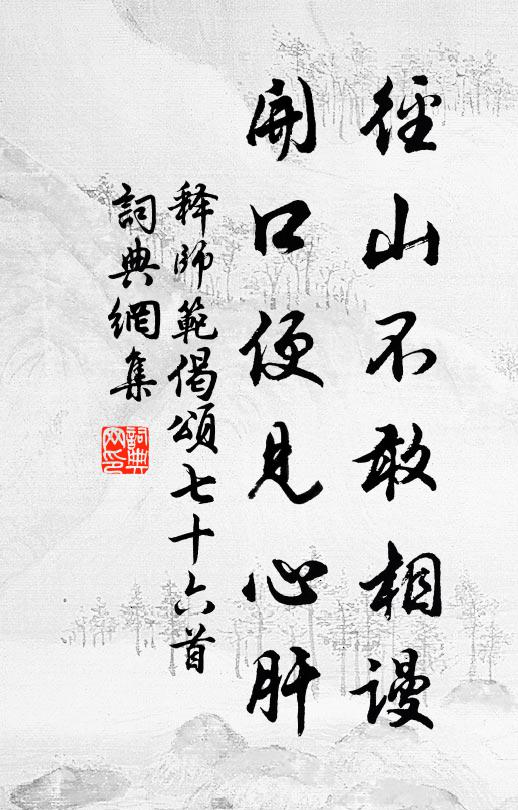 徑山不敢相謾
開口便見心肝
释師範偈頌七十六首
詞典網集
詞典网印